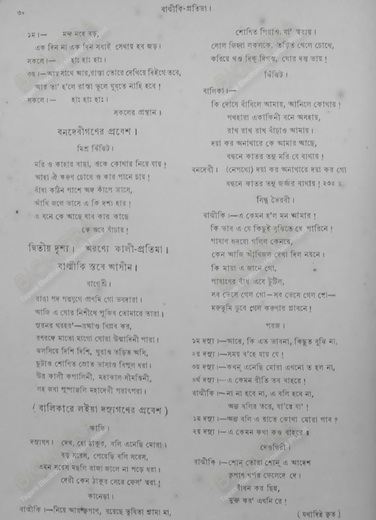 বাল্মীকি-প্রতিমা।
১ম।— মন্দ নহে বড়,
এক দিন না এক দিন সবাই সেথায় হব জড়।
সকলে।— হাঃ হাঃ হাঃ।
২য়।—আয় সাথে আয়, রাস্তা তোরে দেখিয়ে দিইগে তবে,
আর তা' হ'লে রাস্তা ভুলে ঘুরতে নাহি হবে।
সকলে।— হাঃ হাঃ হাঃ।
সকলের প্রস্থান।
বনদেবীগণের প্রবেশ।
মিশ্র ঝিঁঝিট।
মরি ও কাহার বাছা, ওকে কোথায় নিয়ে যায়।
আহা ঐ করুণ চোখে ও কার পানে চায়।
বাঁধা কঠিন পাশে অঙ্গ কাঁপে ত্রাসে,
আঁখি জলে ভাসে এ কি দশা হায়।
এ বনে কে আছে যাব কার কাছে
কে ওরে বাঁচায়।
দ্বিতীয় দৃশ্য। অরণ্যে কালী-প্রতিমা।
বাল্মীকি স্তবে আসীন।
বাগেশ্রী।
রাঙা পদ পদ্মযুগে প্রণমি গো ভবদারা।
আজি এ ঘোর নিশীথে পূজিব তোমারে তারা।
সুরনর থরহর—ব্রহ্মাণ্ড বিপ্লব কর,
রণরঙ্গে মাতো মাগো ঘোরা উন্মাদিনী পারা।
ঝলসিয়ে দিশি দিশি, ঘুরাও তড়িত অসি,
ছুটাও শোণিত স্রোত ভাসাও বিপুল ধরা।
উর কালী কপালিনী, মহাকাল সীমন্তিনী,
লহ জবা পুষ্পাঞ্জলি মহাদেবী পরাৎপরা।
(বালিকারে লইয়া দস্যুগণের প্রবেশ)
কাফি।
দস্যুগণ। দেখ, হো ঠাকুর, বলি এনেছি মোরা।
বড় সরেস, পেয়েছি বলি সরেস,
এমন সরেস মছলি রাজা জালে না পড়ে ধরা।
দেরী কেন ঠাকুর সেরে ফেল' ত্বরা।
কানেড়া।
বাল্মীকি।—নিয়ে আয় কৃপাণ, রয়েছে তৃষিতা শ্যামা মা,
শোণিত পিয়াও যা' ত্বরায়।
লোল জিহ্বা লকলকে, তড়িত খেলে চোখে,
করিয়ে খণ্ড দিক্ দিগন্ত, ঘোর দন্ত ভায়।
ঝিঁঝিট।
বালিকা।—
কি দোষে বাঁধিলে আমায়, আনিলে কোথায়।
পথহারা একাকিনী বনে অসহায়,
রাখ রাখ রাখ বাঁচাও আমায়।
দয়া কর অনাথারে কে আমার আছে,
বন্ধনে কাতর তনু মরি যে ব্যথায়।
বনদেবী। (নেপথ্যে) দয়া কর অনাথারে দয়া কর গো
বন্ধনে কাতর তনু জর্জর ব্যথায়।
সিন্ধু ভৈরবী।
বাল্মীকি।—এ কেমন হ'ল মন আমার।
কি ভাব এ যে কিছুই বুঝিতে যে পারিনে।
পাষাণ হৃদয়ো গলিল কেনরে,
কেন আজি আঁখিজল দেখা দিল নয়নে।
কি মায়া এ জানে গো,
পাষাণের বাঁধ এযে টুটিল,
সব ভেসে গেল গো—সব ভেসে গেল গো—
মরুভূমি ডুবে গেল করুণার প্লাবনে।
পরজ।
১ম দস্যু।—আরে, কি এত ভাবনা, কিছুত বুঝি না।
২য় দস্যু।—সময় ব'হে যায় যে।
৩য় দস্যু।—কখন্ এনেছি মোরা এখনো ত হ'ল না,
৪র্থ দস্যু।—এ কেমন রীতি তব বাহরে।
বাল্মীকি।— না না হবে না, এ বলি হবে না,
অন্য বলির তরে, যা'রে যা'।
১ম দস্যু।—অন্য বলি এ রাতে কোথা মোরা পাব?
২য় দস্যু।—এ কেমন কথা কও বাহরে।
দেওগিরি।
বাল্মীকি।—শোন্ তোরা শোন্ এ আদেশ
কৃপাণ খর্পর ফেলেদে দে।
বাঁধন কর ছিন্ন,
মুক্ত কর' এখনি রে।
(যথাদিষ্ট কৃত)